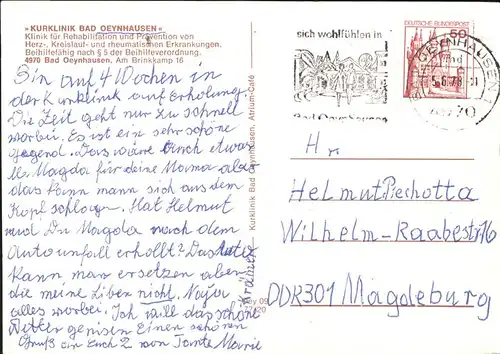 »KURKLINIK BAD OEYNHAUSEN«
Klinik für Rehabilitation und Prävention von
Herz-, Kreislauf- und rheumatischen Erkrankungen.
Beihilfefähig nach § 5 der Beihilfeverordnung.
4970 Bad Oeynhausen, Am Brinkkamp 16
Bin auf 4 Wochen in
der Kurklinik auf Erholung.
Die Zeit geht nur zu schnell
vorbei. Es ist ein sehr schöne
Gegend. Das wäre auch etwas
Magda für deine Mama aber
das kann mann sich aus dem
Kopf schlagen. Hat Helmut
und Du Magda nach dem
Autounfall erhollt? Das Auto
Kann man ersetzen aber
die meine Liben nicht. Naja
alles vorbei. Ich will das schöne
Wetter genisen Einen schönen
Gruß an Euch 2 von Tante Marie
Kurklinik Bad Oeynhausen, Atrium-Café
sich wohlfühlen in
Bad Oeynhausen
DEUTSCHE BUNDESPOST
50
BAD OEYNHAUSEN 1
-5.6.78
4970
Hr.
Helmut Piechotta
Wilhelm-Raabestr 16
DDR 301 Magdeburg